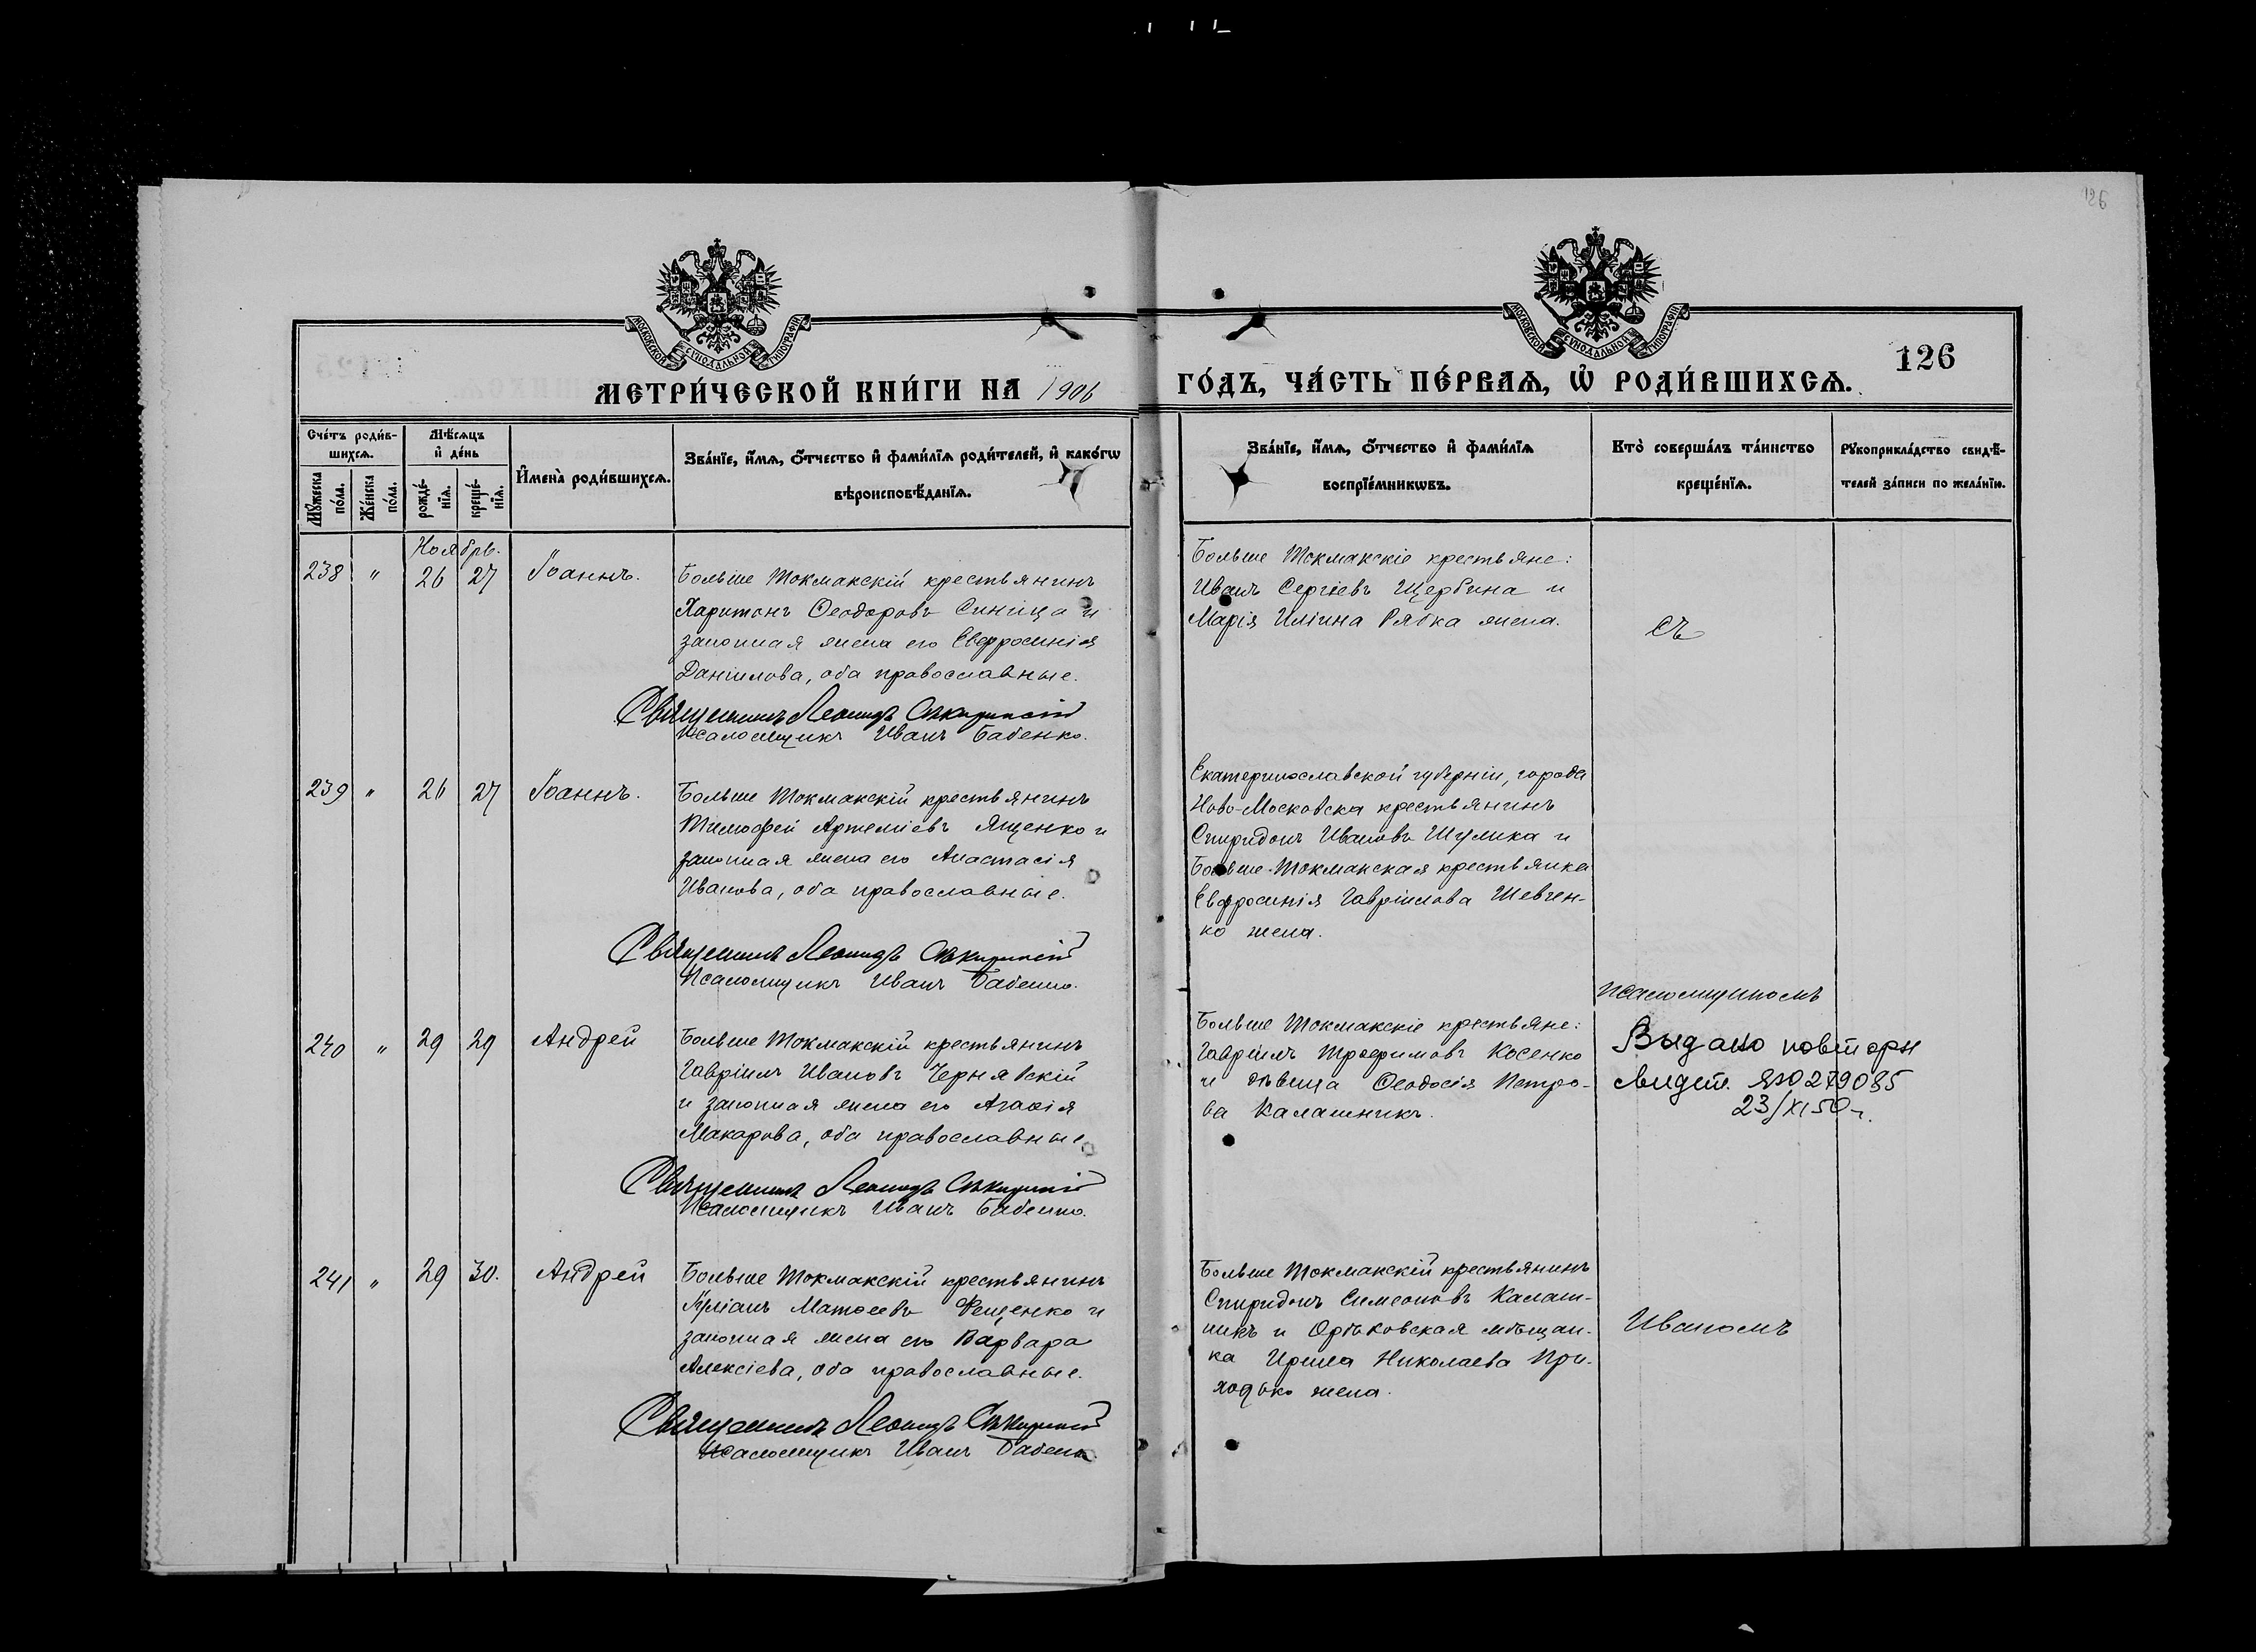 126
МОСКОВСКОЙ СУНОДАЛЬНОЙ ТИПОГРАФІИ
МОСКОВСКОЙ СУНОДАЛЬНОЙ ТИПОГРАФІИ
126
МЕТРИ́ЧЕСКОЙ КНИ́ГИ НА 1906
ГО́ДЪ, ЧА́СТЬ ПЕ́РВАѦ, Ѡ҆ РОДИ́ВШИХСѦ.
Сче́тъ роди́в-
шихсѧ.
Мꙋ́жеска по́ла.
Же́нска по́ла.
Мѣ́сѧцъ
и҆ де́нь
рожде́-
нїѧ.
креще́-
нїѧ.
И҆мена̀ роди́вшихсѧ.
Зва́нїе, и҆́мѧ, ѻ҆́тчество и҆ фами́лїѧ роди́телей, и҆ како́гѡ
вѣроисповѣ́данїѧ.
Зва́нїе, и҆́мѧ, ѻ҆́тчество и҆ фами́лїѧ
воспрїе́мникѡвъ.
Кто̀ соверша́лъ та́инство
креще́нїѧ.
Рꙋкоприкла́дство свидѣ́-
телей за́писи по жела́нїю.
Ноябрь.
238 " 26 27 Іоаннъ.
Больше Токмакскій крестьянинъ
Харитонъ Ѳеодоровъ Синица и
законная жена его Евфросинія
Даніилова, оба православные.
Священникъ Леонидъ
Псаломщикъ Иванъ Бабенко.
Больше Токмакскіе крестьяне:
Иванъ Сергіевъ Щербина и
Марія Иліина Рябка жена.
Съ
239 " 26 27 Іоаннъ.
Больше Токмакскій крестьянинъ
Тимофей Артеміевъ Ященко и
законная жена его Анастасія
Иванова, оба православные.
Священникъ Леонидъ
Псаломщикъ Иванъ Бабенко.
Екатеринославской губерніи, города
Ново-Московска крестьянинъ
Спиридонъ Ивановъ Шулика и
Больше-Токмакская крестьянка
Евфросинія Гавріилова Шевчен-
ко жена.
псаломщикомъ
240 " 29 29 Андрей
Больше Токмакскій крестьянинъ
Гавріилъ Ивановъ Чернявскій
и законная жена его Агафія
Макарова, оба православные.
Священникъ Леонидъ
Псаломщикъ Иванъ Бабенко.
Больше Токмакскіе крестьяне:
Гавріилъ Трофимовъ Косенко
и дѣвица Ѳеодосія Петро-
ва Калашникъ.
Выдано повторн
свидет. ЯЮ 279085
23/XI 50 г.
241 " 29 30. Андрей
Больше Токмакскій крестьянинъ
Іуліанъ Матѳеевъ Фещенко и
законная жена его Варвара
Алексіева, оба православные.
Священникъ Леонидъ
Псаломщикъ Иванъ Бабенко
Больше Токмакскій крестьянинъ
Спиридонъ Симеоновъ Калаш-
никъ и Орѣховская мѣщан-
ка Ирина Николаева При-
ходько жена.
Иваномъ